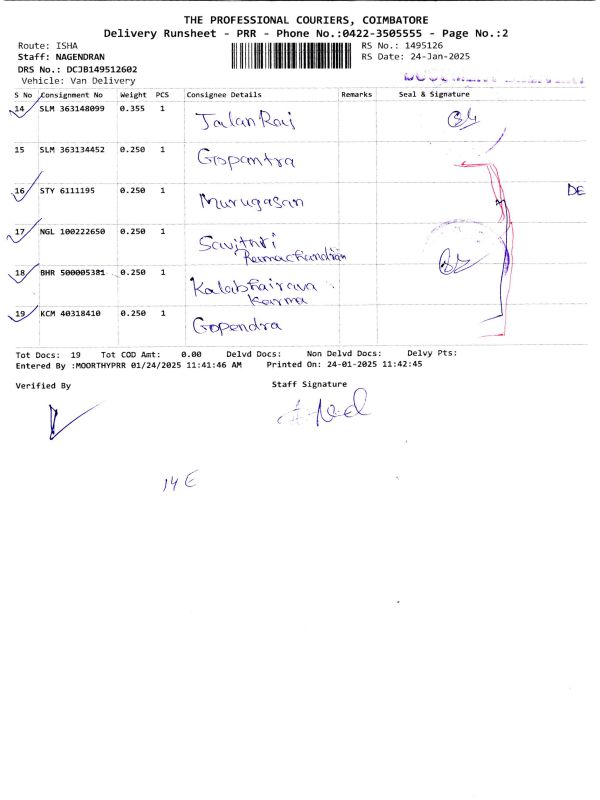 THE PROFESSIONAL COURIERS, COIMBATORE
Delivery Runsheet - PRR - Phone No.:0422-3505555 - Page No.:2
Route: ISHA RS No.: 1495126
Staff: NAGENDRAN RS Date: 24-Jan-2025
DRS No.: DCJB149512602
Vehicle: Van Delivery
S No Consignment No Weight PCS Consignee Details Remarks Seal & Signature
14 SLM 363148099 0.355 1 JalanRaj
15 SLM 363134452 0.250 1 Gopantra
16 STY 6111195 0.250 1 Murugasan DE
17 NGL 100222650 0.250 1 Savithri
Ramachandran
18 BHR 500005381 0.250 1 Kalabhairava
Karma
19 KCM 40318410 0.250 1 Gopendra
Tot Docs: 19 Tot COD Amt: 0.00 Delvd Docs: Non Delvd Docs: Delvy Pts:
Entered By :MOORTHYPRR 01/24/2025 11:41:46 AM Printed On: 24-01-2025 11:42:45
Verified By Staff Signature
14 E